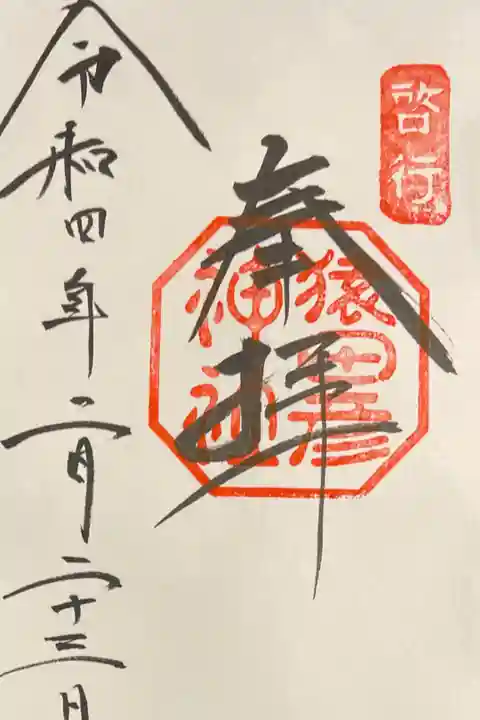 啓行
奉拝
猿田彦
神社
令和四年二月二十三日